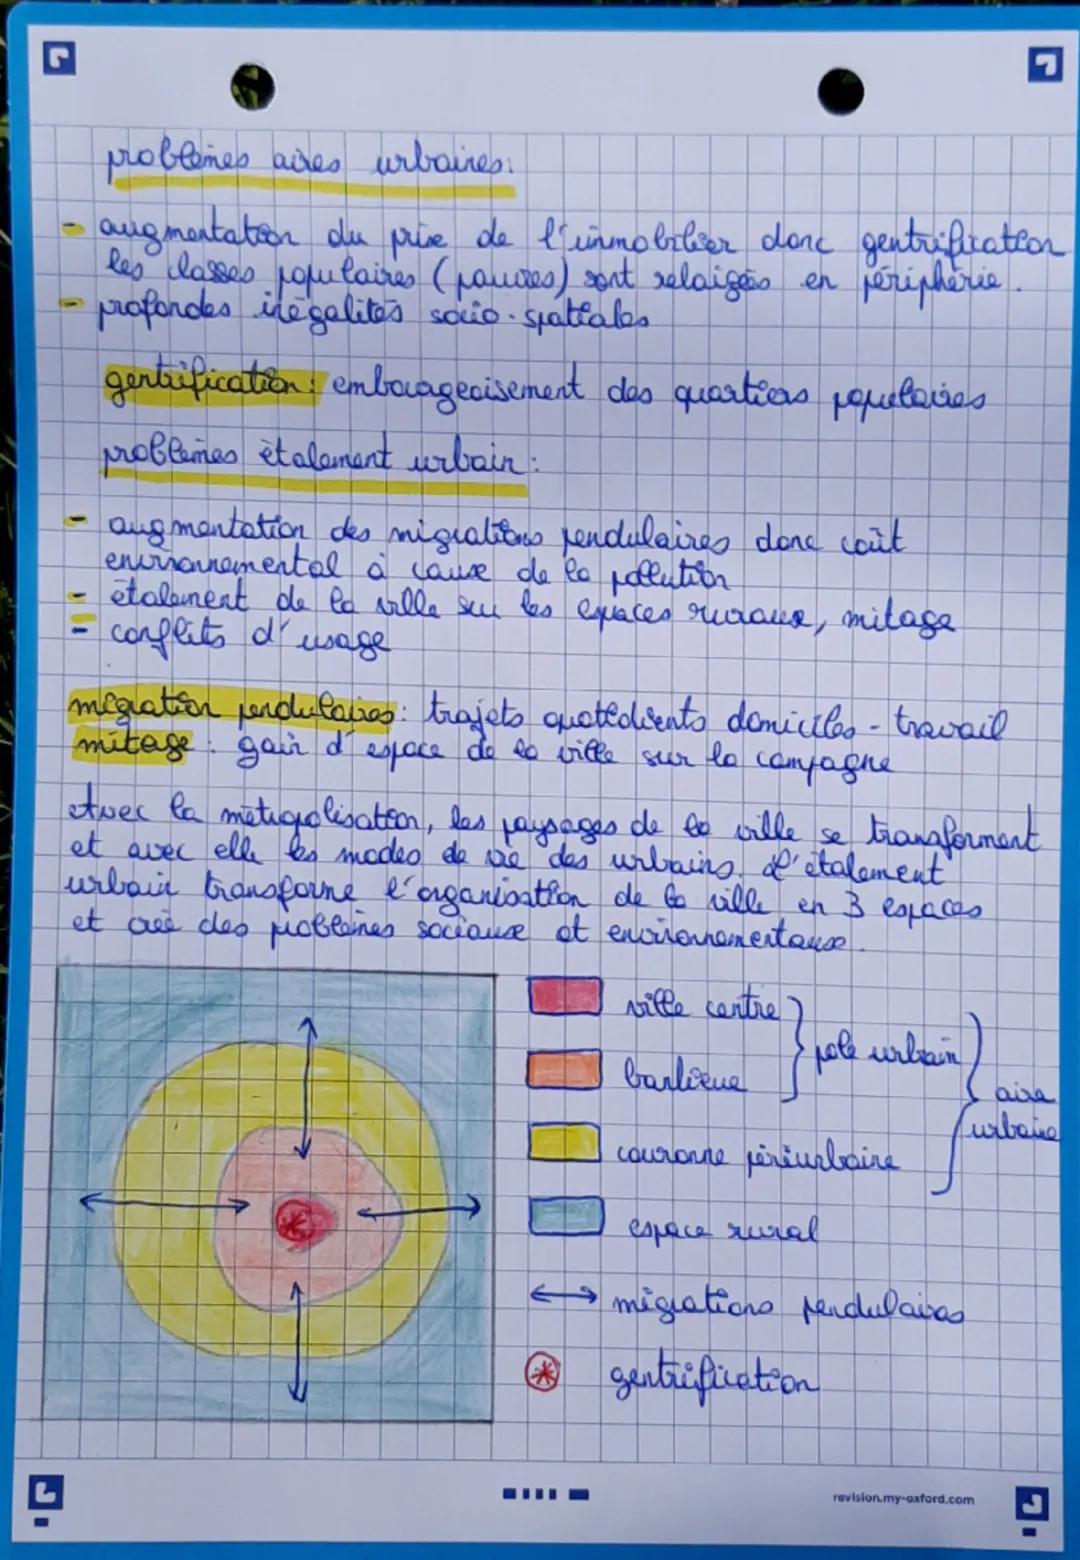 problèmes aires urbaines:
- augmentation du prix de l'immobilier donc gentrification
les classes populaires (pauvres) sont relaigées en périphérie.
- profondes inégalités socio-spatiales
gentrification: embourgeoisement des quartiers populaires
problèmes étalement urbain:
- augmentation des migrations pendulaires donc coût
environnemental à cause de la pollution
- étalement de la ville sur les espaces ruraux, mitage
- conflits d'usage
migration pendulaires: trajets quotidients domiciles - travail
mitage: gain d'espace de la ville sur la campagne
Avec la métropolisation, les paysages de la ville se transforment
et avec elle les modes de vie des urbains. L'étalement
urbain transforme l'organisation de la ville en 3 espaces
et crée des problèmes sociaux et environnementaux.
ville centre
banlieue
pole urbain
aire
urbaine
couronne périurbaine
espace rural
migrations pendulaires
gentrification
revision.my-oxford.com